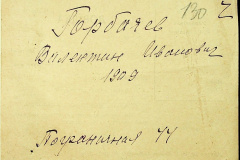 Горбачев 130 2
Валентин Иванович
1909
Пограничная 44